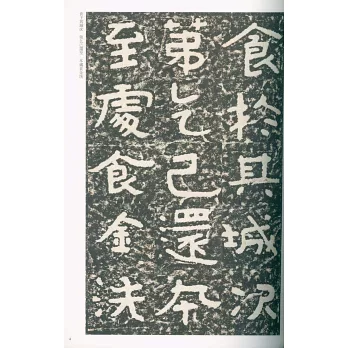 食於其城次
第乞已還令
至處食金洗